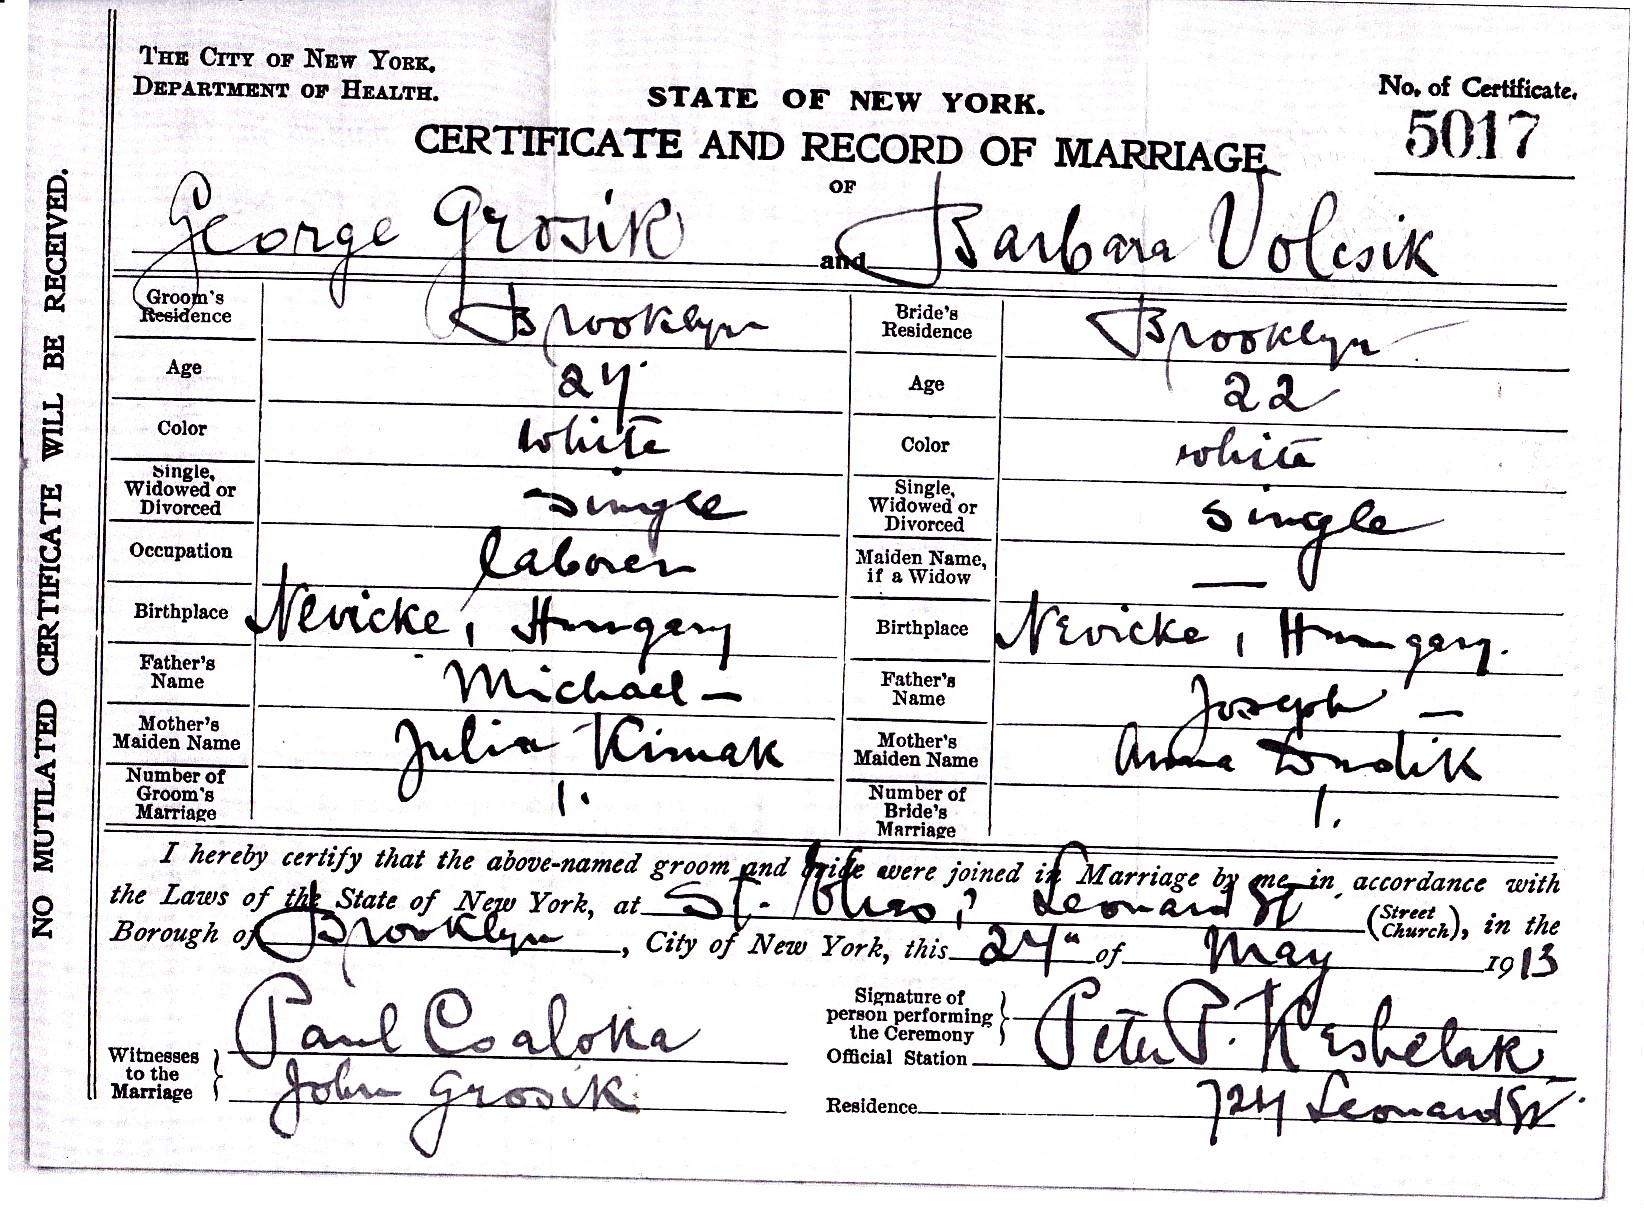 THE CITY OF NEW YORK.
DEPARTMENT OF HEALTH.
STATE OF NEW YORK.
No. of Certificate.
5017
CERTIFICATE AND RECORD OF MARRIAGE
OF
George Grosik and Barbara Volcsik
Groom's Residence Brooklyn Bride's Residence Brooklyn
Age Age 22
Color white Color white
Single, Widowed or Divorced single Single, Widowed or Divorced single
Occupation laborer Maiden Name, if a Widow —
Birthplace Nevicke, Hungary Birthplace Nevicke, Hungary.
Father's Name Michael — Father's Name Joseph —
Mother's Maiden Name Julia Kimak Mother's Maiden Name Anna Dudik
Number of Groom's Marriage 1. Number of Bride's Marriage 1.
I hereby certify that the above-named groom and bride were joined in Marriage by me in accordance with
the Laws of the State of New York, at St. Leonard St (Street Church), in the
Borough of Brooklyn, City of New York, this of May 1913
Witnesses to the Marriage Paul Csaloka
John Grosik
Signature of person performing the Ceremony Peter P. Keshelak
Official Station
Residence Leonard St.
NO MUTILATED CERTIFICATE WILL BE RECEIVED.